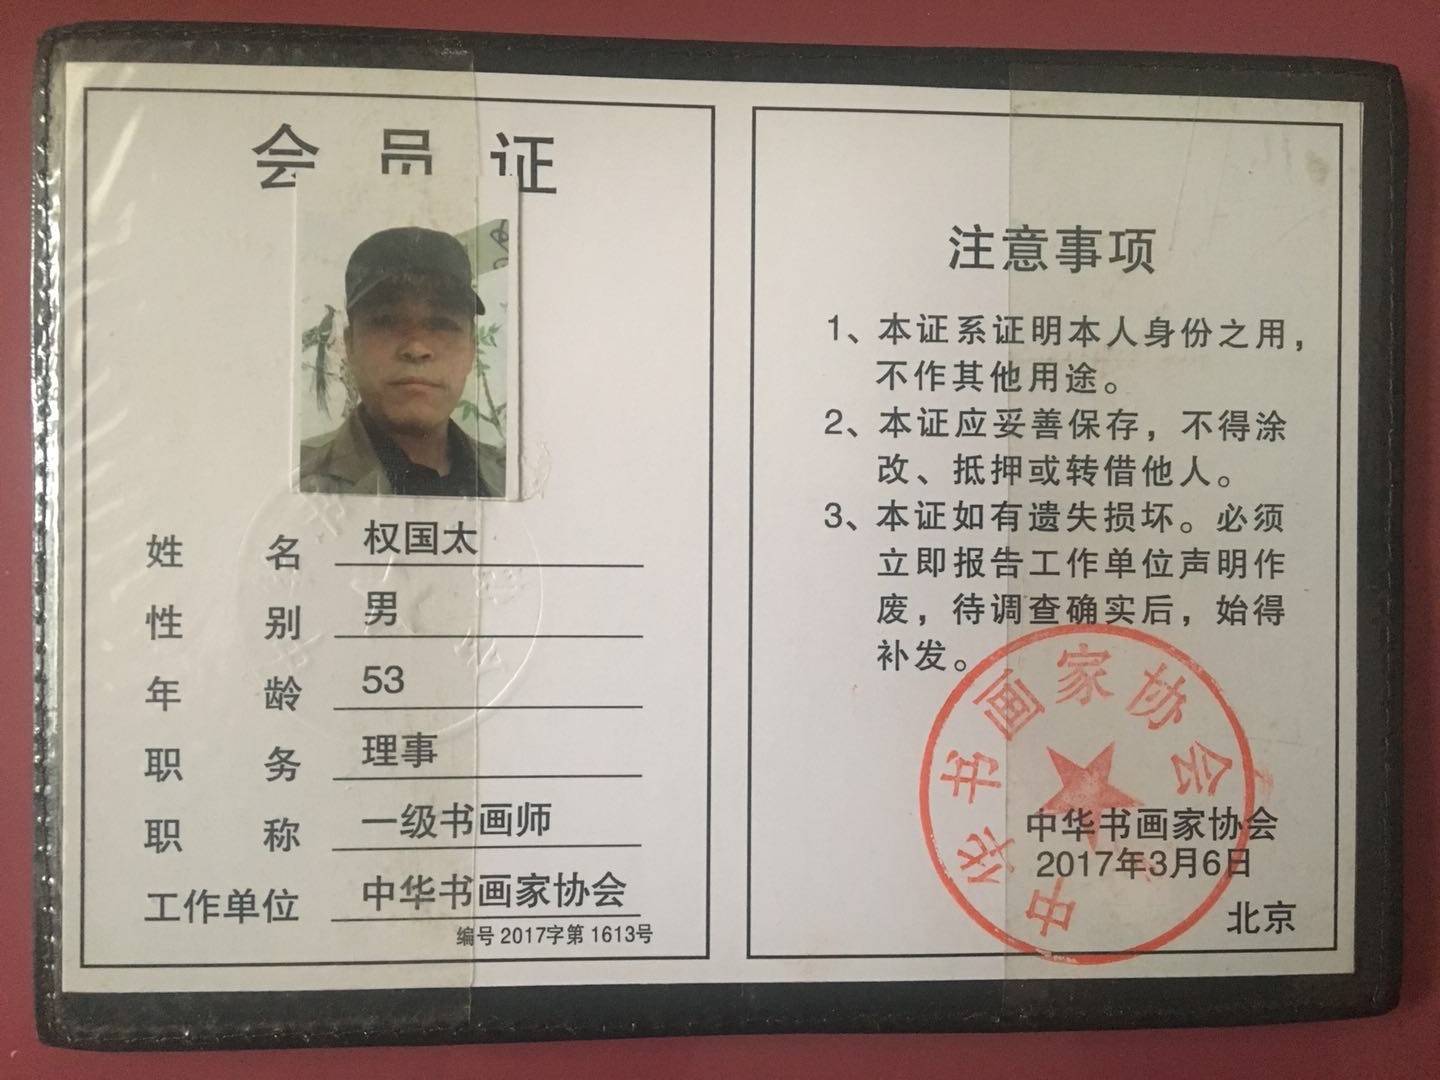 会员证
姓名 权国太
性别 男
年龄 53
职务 理事
职称 一级书画师
工作单位 中华书画家协会
编号 2017字第 1613号
注意事项
1、本证系证明本人身份之用，
不作其他用途。
2、本证应妥善保存，不得涂
改、抵押或转借他人。
3、本证如有遗失损坏。必须
立即报告工作单位声明作
废，待调查确实后，始得
补发。
中华书画家协会
中华书画家协会
2017年3月6日
北京